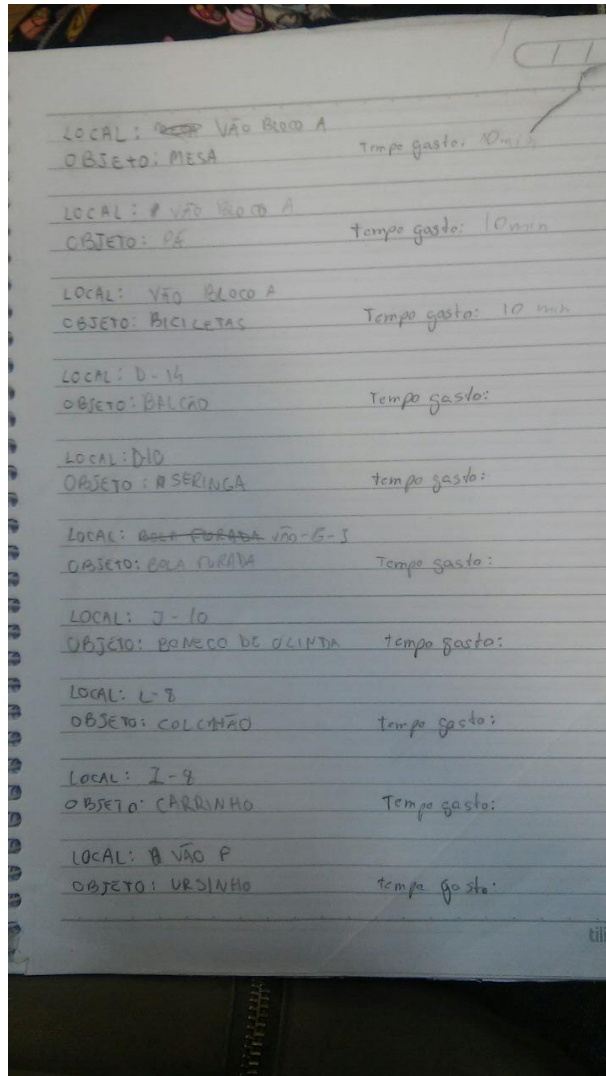 LOCAL: VÃO BLOCO A
OBJETO: MESA Tempo gasto: 10 min
LOCAL: VÃO BLOCO A
OBJETO: PÁ tempo gasto: 10 min
LOCAL: VÃO BLOCO A
OBJETO: BICILETAS Tempo gasto: 10 min
LOCAL: D-14
OBJETO: BALCÃO Tempo gasto:
LOCAL: D-10
OBJETO: SERINGA tempo gasto:
LOCAL: BOLA FURADA VÃO-G-J
OBJETO: BOLA FURADA Tempo gasto:
LOCAL: J-10
OBJETO: BONECO DE OLINDA tempo gasto:
LOCAL: L-8
OBJETO: COLCHÃO tempo gasto:
LOCAL: I-8
OBJETO: CARRINHO Tempo gasto:
LOCAL: VÃO P
OBJETO: URSINHO tempo gasto: